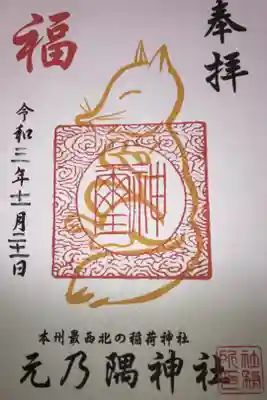 奉拝
福
令和三年十一月二十一日
神璽
本州最西北の稲荷神社
元乃隅神社